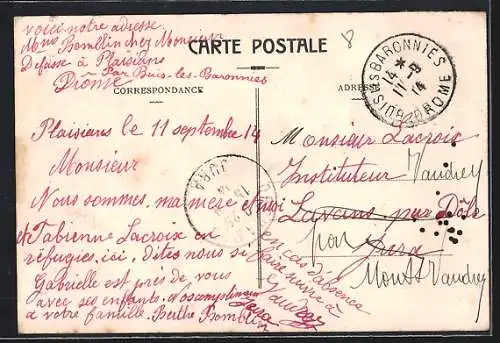 voici notre adresse
Mme Bomblin chez Monsieur
Defaisse à Plaisians
Par Buis-les-Baronnies
Drôme
8
CARTE POSTALE
CORRESPONDANCE
ADRESSE
BUIS-LES-BARONNIES
DROME
Plaisians le 11 septembre 14
Monsieur
Nous sommes, ma mère et moi
et Fabienne Lacroix en
réfugiés, ici, dites nous si
Gabrielle est près de vous
avec ses enfants.
à votre famille. Berthe Bomblin
JURA
Monsieur Lacroix
Instituteur Vaudrey
Lavans par Dôle
par Jura
Mont s Vaudrey
en cas d'absence
faire suivre à
Vaudrey
Jura